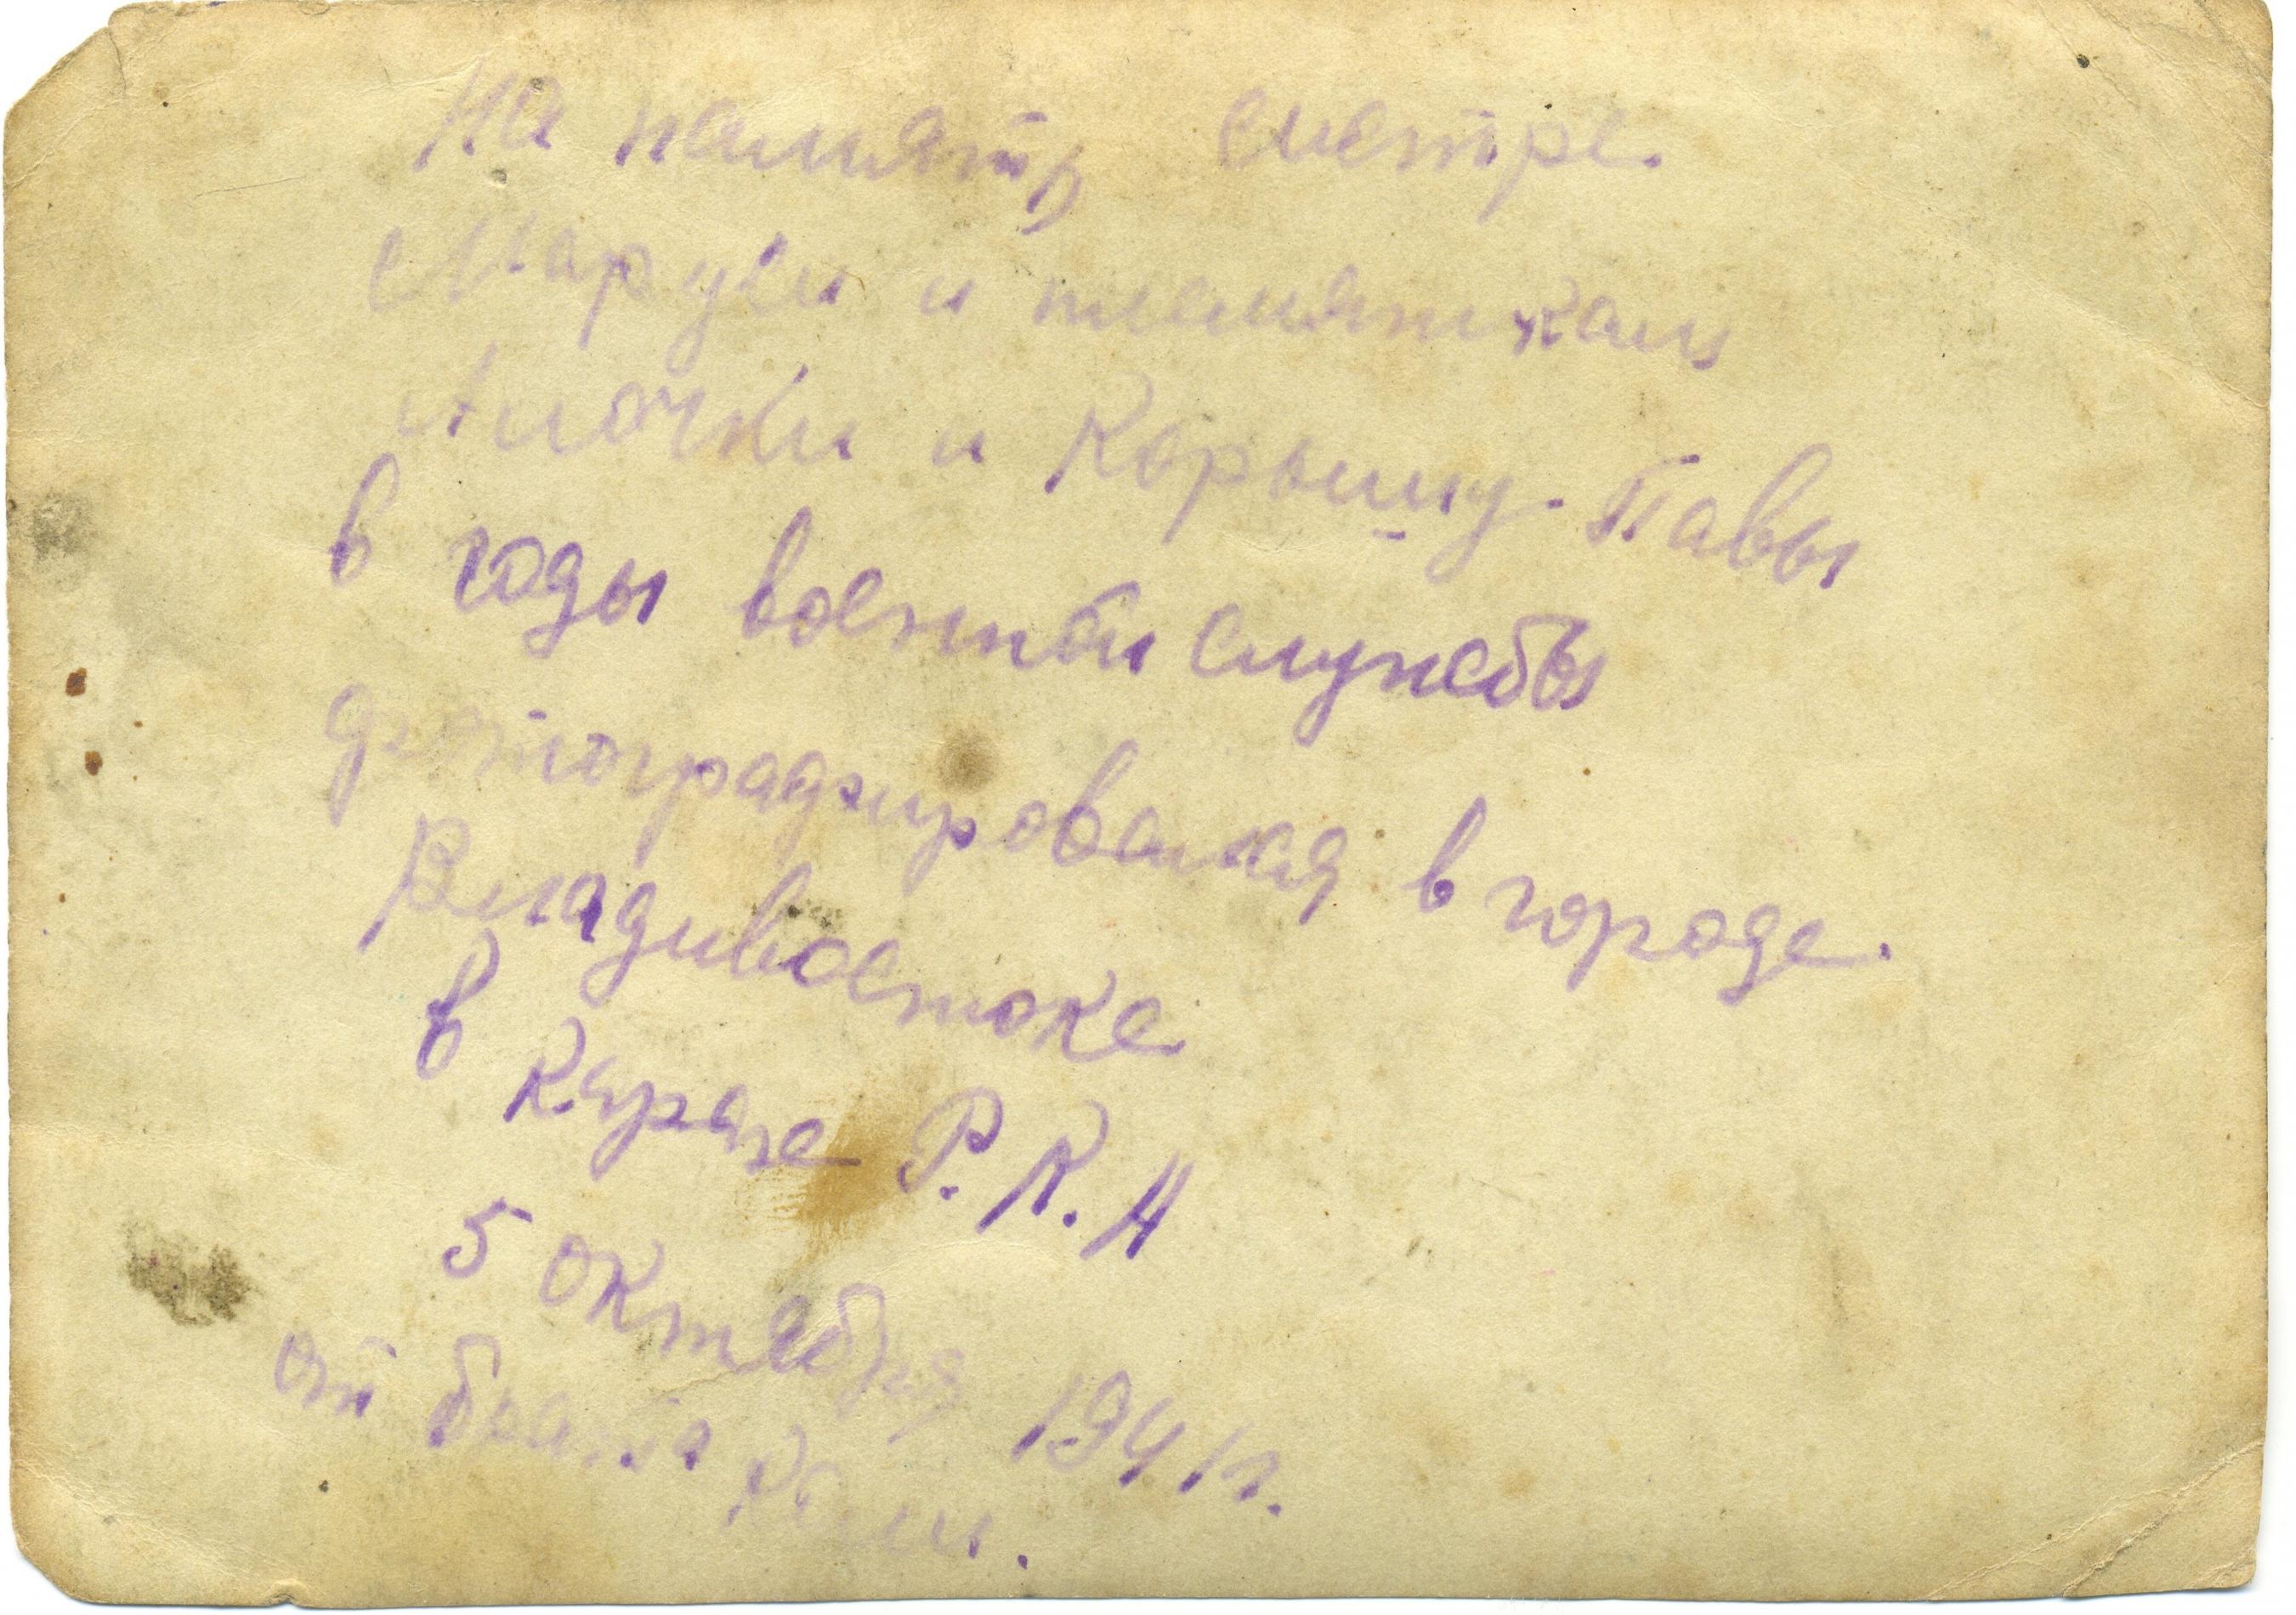 На память систре.
Маруси и племяткам
Лиочки и Карышу. Павы
в годы военной службы
фотографировался в городе.
Владивостоке
в Кураже Р.К.А
5 октебря 1941г.
от брата Коли.